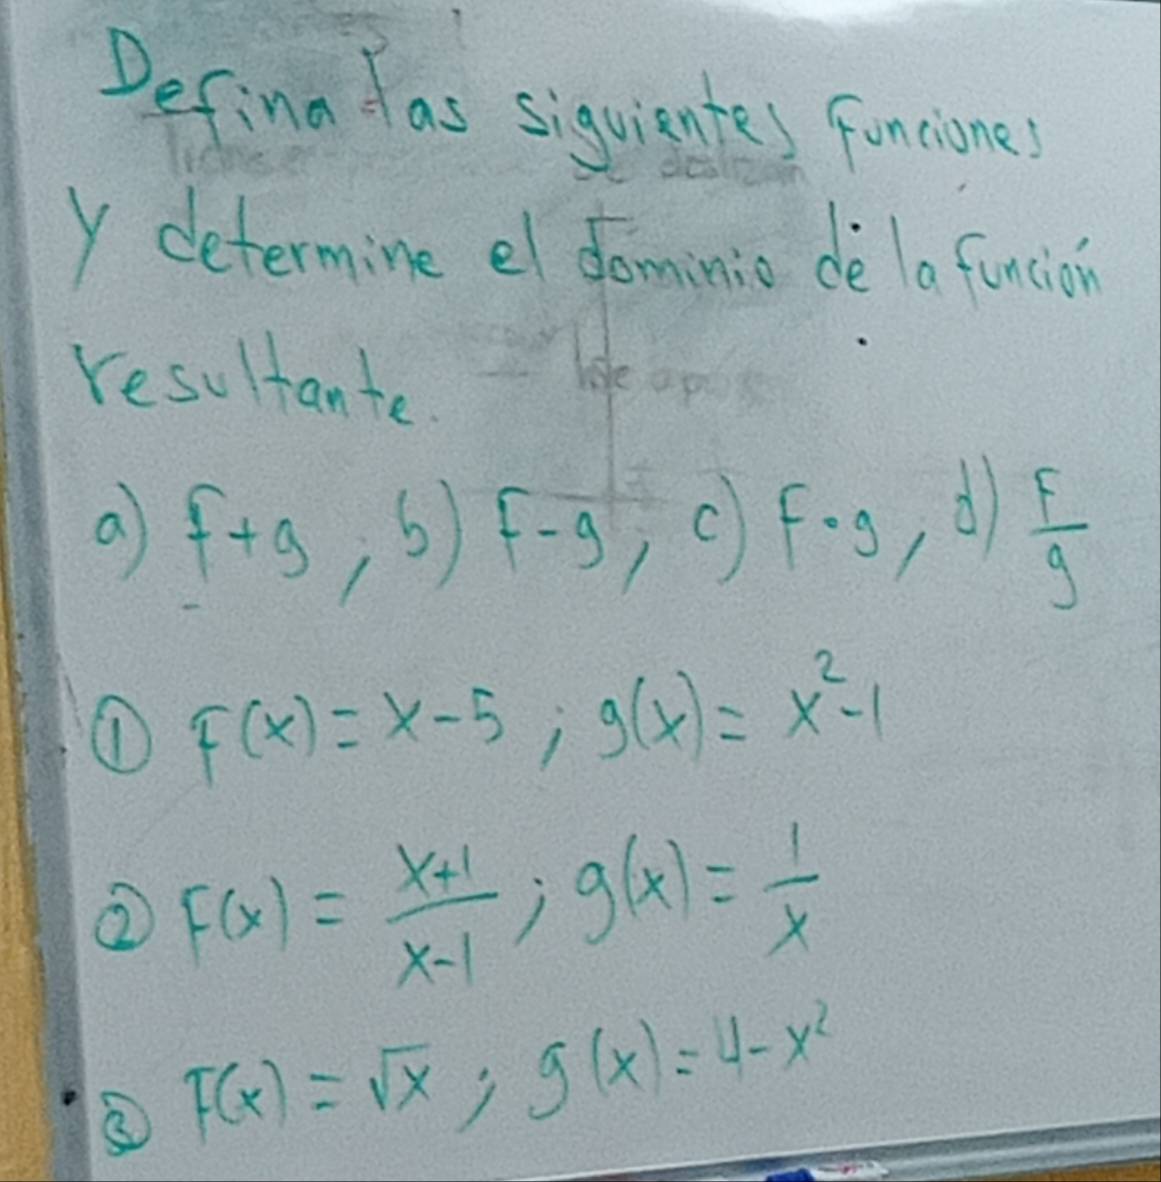 Defina las siguientes funciones
y determine el dominio de la función
resultante.
a) f+g, b) f-g, c) f·g, d) f/g
① f(x) = x-5 ; g(x) = x²-1
② f(x) = (x+1)/(x-1) ; g(x) = 1/x
③ f(x) = √x ; g(x) = 4-x²